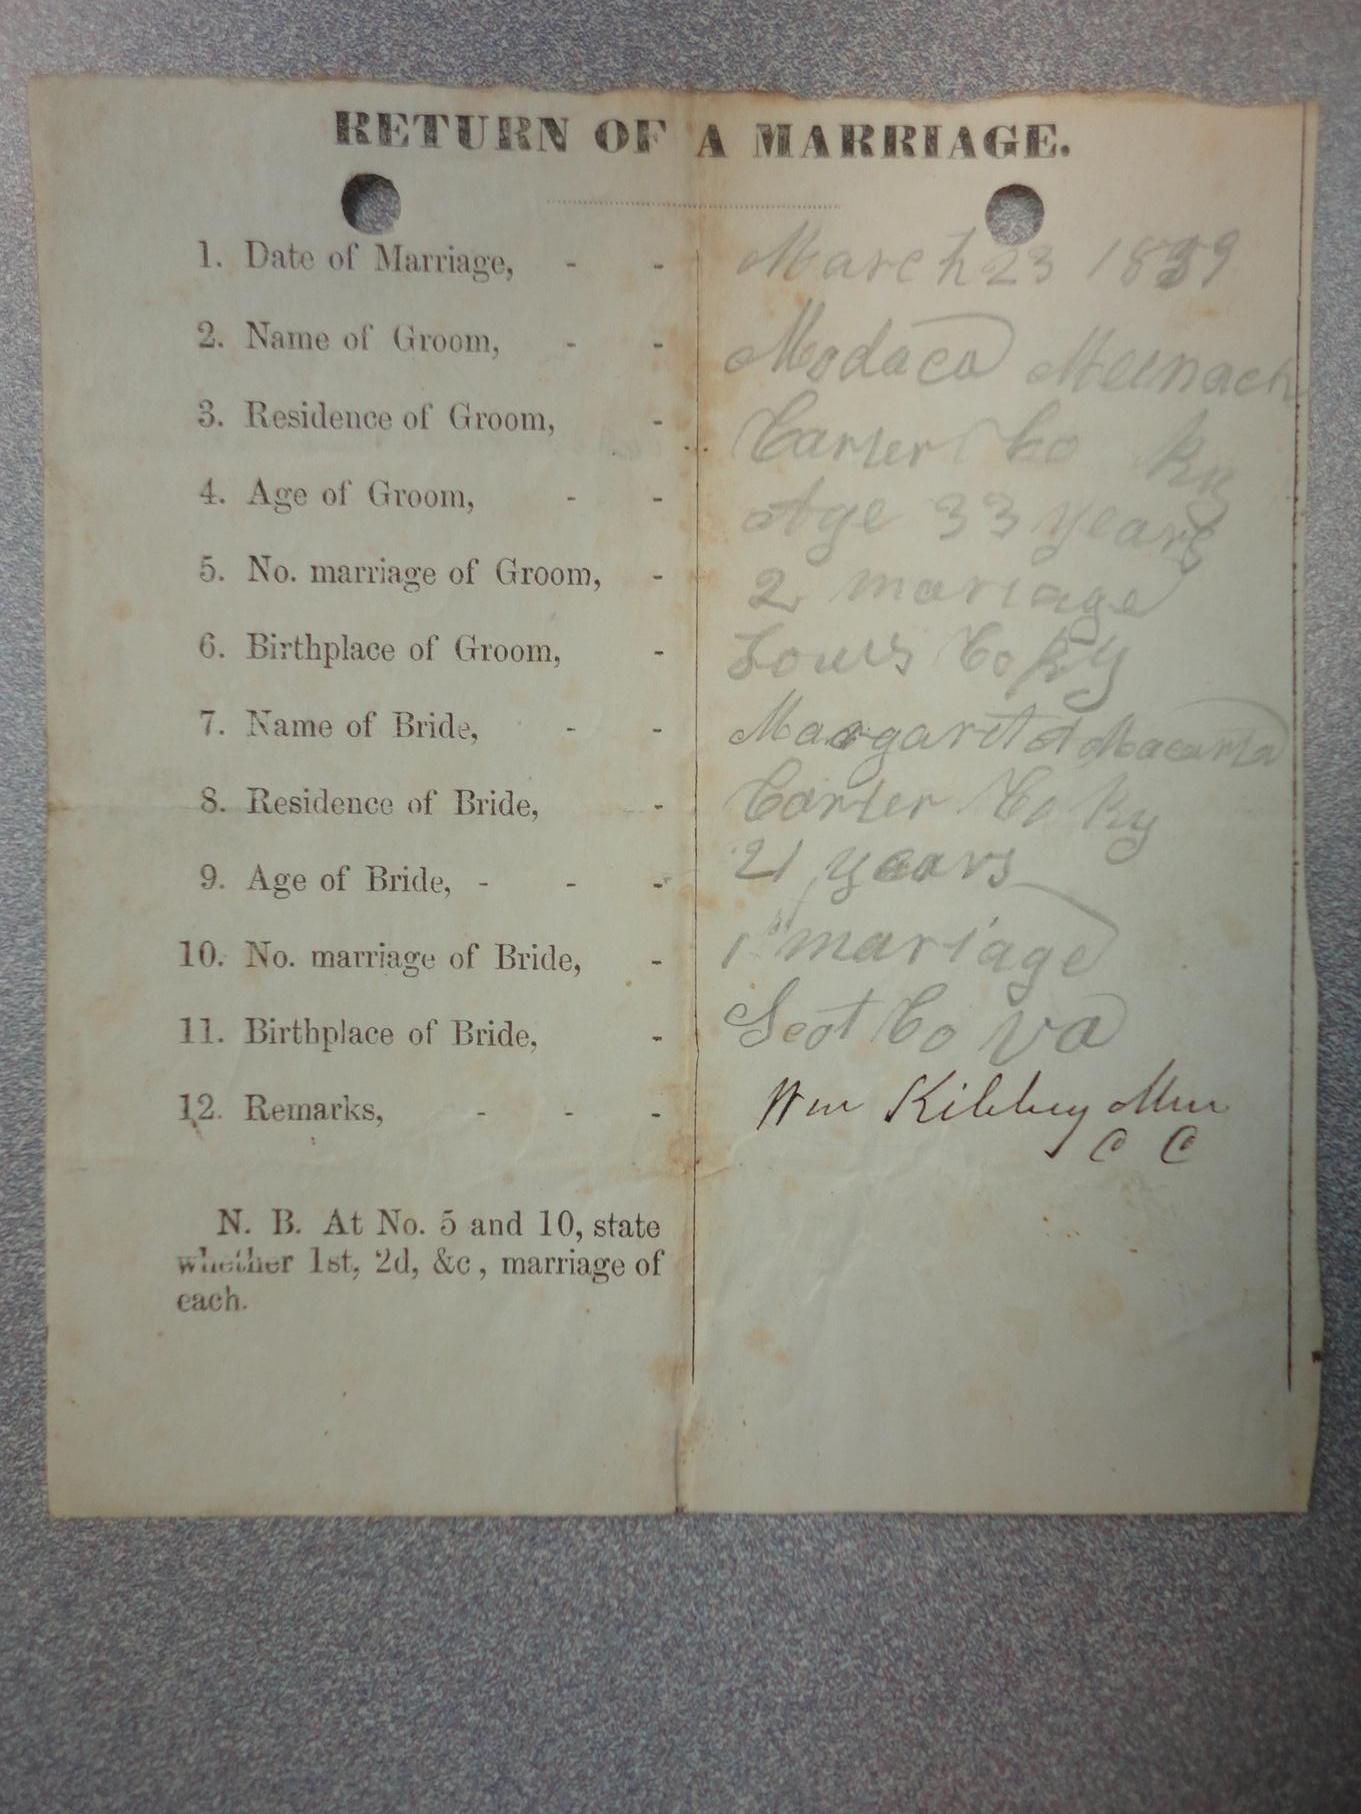 RETURN OF A MARRIAGE.
1. Date of Marriage, - - March 23 1859
2. Name of Groom, - - Modaca Meenach
3. Residence of Groom, - Carter Co Ky
4. Age of Groom, - - Age 33 years
5. No. marriage of Groom, - 2 mariage
6. Birthplace of Groom, - Lowis Co Ky
7. Name of Bride, - - Margaret
8. Residence of Bride, - Carter Co Ky
9. Age of Bride, - - - 21 years
10. No. marriage of Bride, - 1" mariage
11. Birthplace of Bride, - Scot Co Va
12. Remarks, - - - Wm Kibbey Mm
C C
N. B. At No. 5 and 10, state
whether 1st, 2d, &c, marriage of
each.